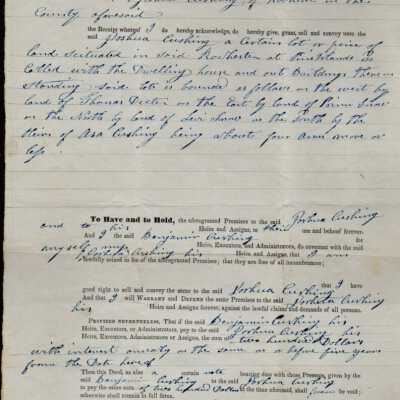 County aforesaid
the Receipt whereof I do hereby acknowledge, do hereby give, grant, sell and convey unto the
said Joshua Cushing a certain lot or piece of
land scituated in said at
Called with the Dwelling house and out Buildings thereon
Standing Said lot is bounded as follows on the west by
land of Thomas on the East by land of
on the North by land of Levi on the South by the
Heirs of Asa Cushing being about four acres more or
less
To Have and to Hold, the aforegranted Premises to the said Joshua Cushing
and to his Heirs and Assigns, to their use and behoof forever.
And I the said Benjamin Cushing for
myself my Heirs, Executors, and Administrators, do covenant with the said
Joshua Cushing his Heirs and Assigns, that I am
lawfully seized in fee of the aforegranted Premises; that they are free of all incumbrances;
that I have
good right to sell and convey the same to the said Joshua Cushing
And that I will WARRANT and DEFEND the same Premises to the said Joshua Cushing
his Heirs and Assigns forever, against the lawful claims and demands of all persons.
PROVIDED NEVERTHELESS, That if the said Benjamin Cushing his
Heirs, Executors, or Administrators, pay to the said Joshua Cushing his
Heirs, Executors, Administrators or Assigns, the sum of two hundred Dollars
with interest on the same on or before five years
from the Date hereof
Then this Deed, as also certain note bearing date with these Presents, given by the
said Benjamin Cushing to the said Joshua Cushing
to pay the same sum of two hundred Dollars at the time aforesaid, shall be void;
otherwise shall remain in full force.